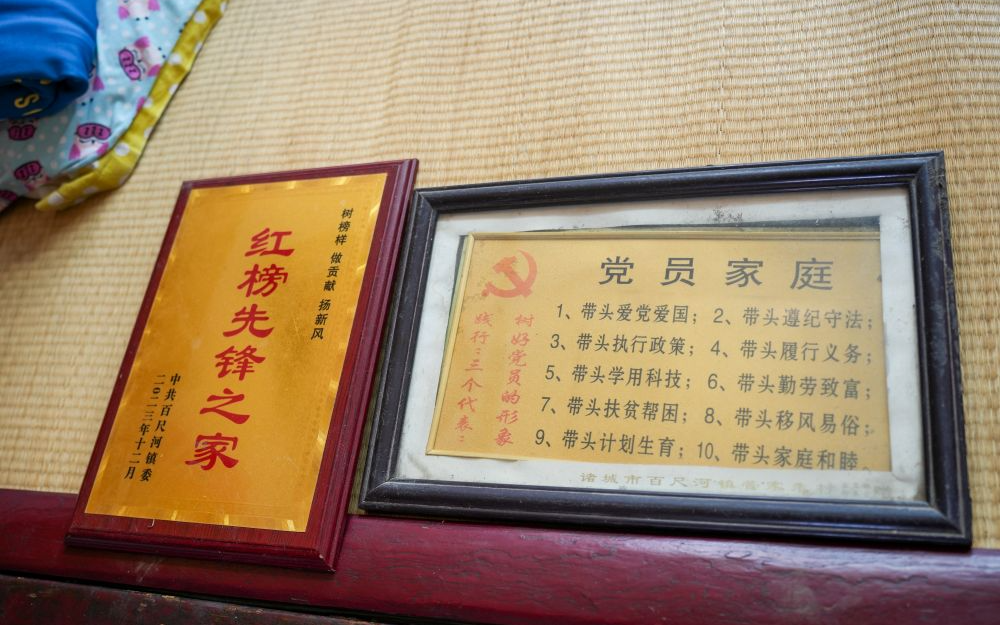 树榜样 做贡献 扬新风
红榜先锋之家
中共百尺河镇委
二〇二三年十二月
党员家庭
树好党员的形象
践行“三个代表”
1、带头爱党爱国；2、带头遵纪守法；
3、带头执行政策；4、带头履行义务；
5、带头学用科技；6、带头勤劳致富；
7、带头扶贫帮困；8、带头移风易俗；
9、带头计划生育；10、带头家庭和睦。
诸城市百尺河镇管家